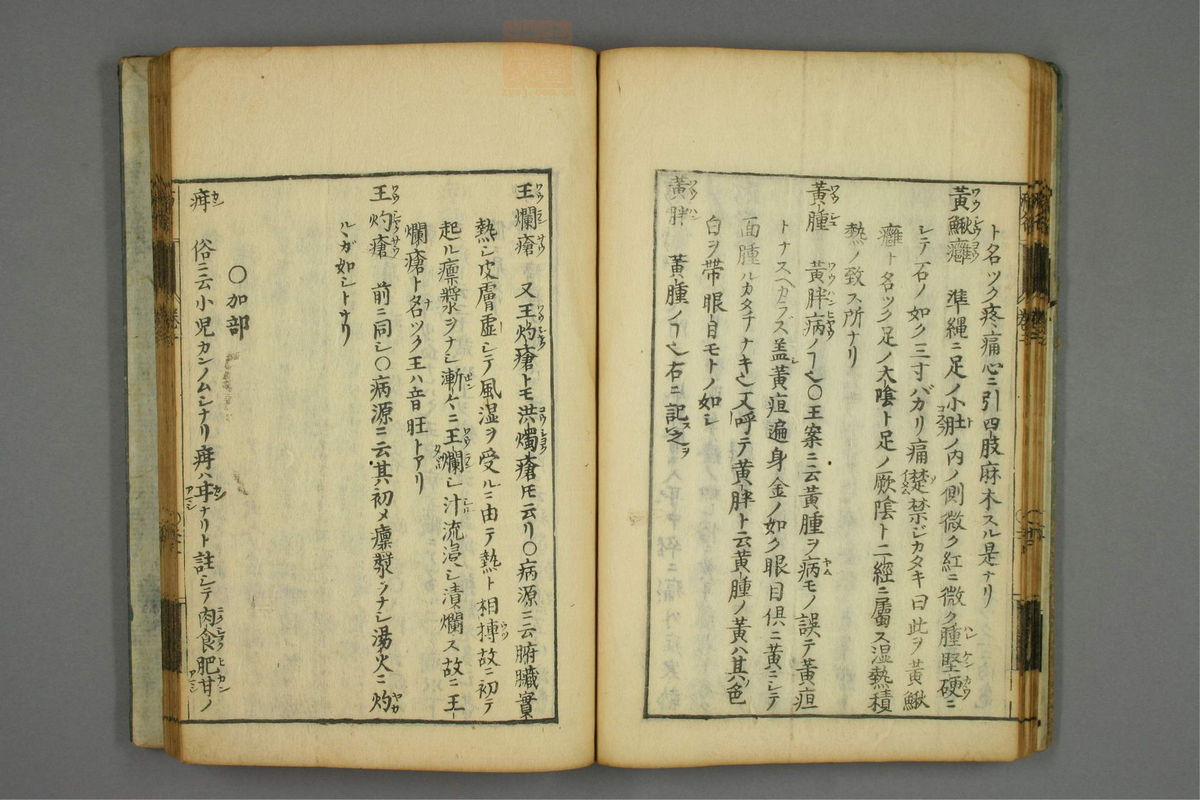 ト名ツク疼痛心ニ引四肢麻木スル是ナリ
黃鰍癰 準縄ニ足ノ小肚ノ内ノ側微ク紅ニ微ク腫堅硬ニ
シテ石ノ如ク三寸バカリ痛楚禁ジカタキ曰此ヲ黃鰍
癰ト名ツク足ノ大陰ト足ノ厥陰ト二經ニ屬ス湿熱積
熱ノ致ス所ナリ
黃腫 黃胖病ノヿ也〇王案ニ云黃腫ヲ病モノ誤テ黃疸
トナスベカラズ盖黃疸遍身金ノ如ク眼目倶ニ黃ニシテ
面腫ルカタチナキ也又呼テ黃胖ト云黃腫ノ黃ハ其色
白ヲ帯眼目モトノ如シ
黃胖 黃腫ノヿ也右ニ記之
王爛瘡 又王灼瘡トモ洪燭瘡トモ云リ〇病源ニ云腑臓實
熱シ皮膚虛シテ風湿ヲ受ルニ由テ熱ト相搏故ニ初テ
起ル瘭漿ヲナシ漸々ニ王爛シ汁流浸シ漬爛ス故ニ王
爛瘡ト名ツク王ハ音旺トアリ
王灼瘡 前ニ同シ〇病源ニ云其初メ瘭漿ヲナシ湯火ニ灼
ルヽガ如シトナリ
〇加部
疳 俗ニ云小児カンノムシナリ疳ハ甘ナリト註シテ肉食肥甘ノ